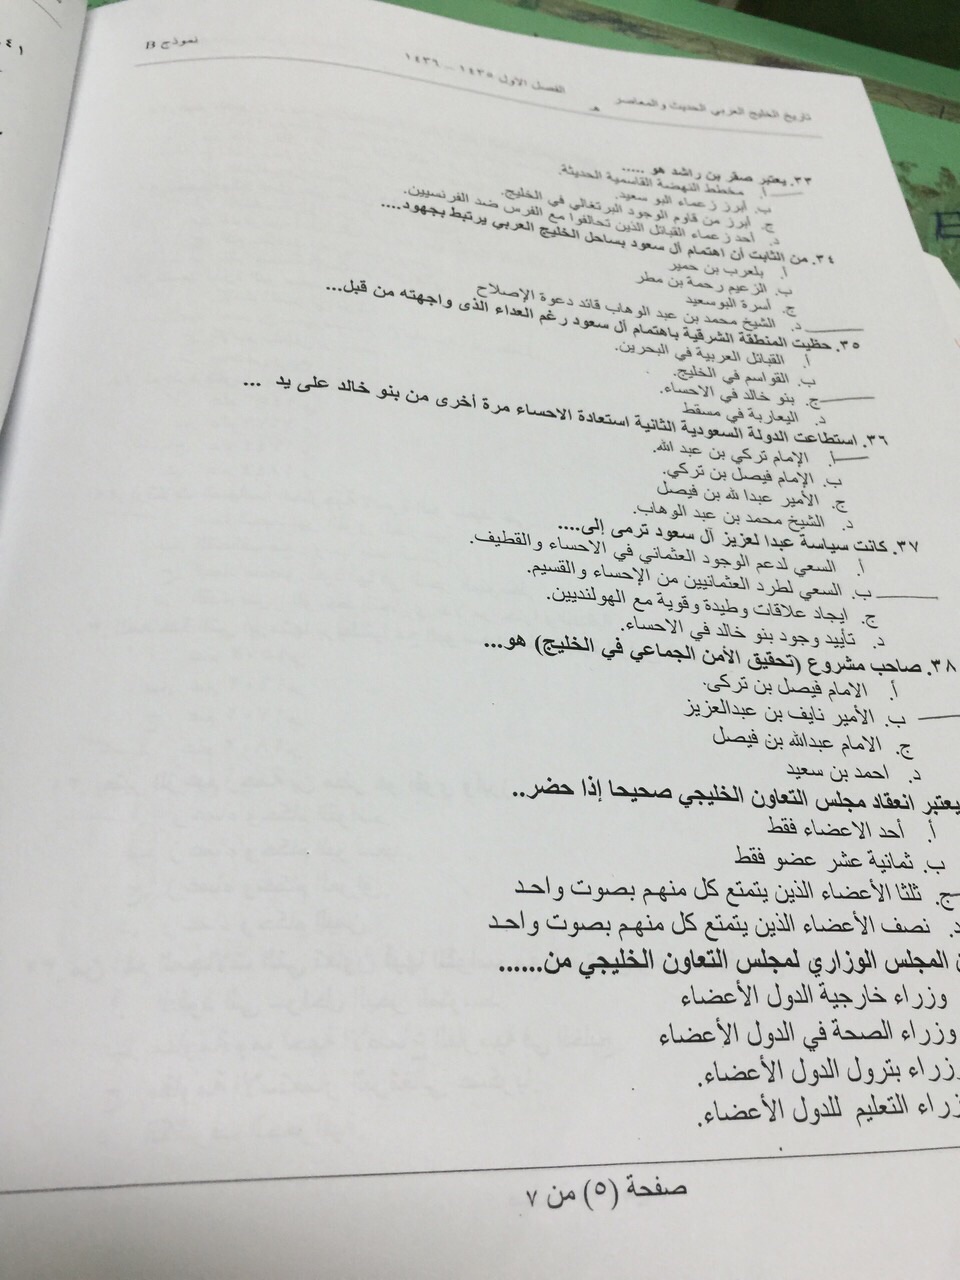 تاريخ الخليج العربي الحديث والمعاصر الفصل الاول ١٤٣٥ – ١٤٣٦ هـ نموذج B
٣٣. يعتبر صقر بن راشد هو .....
أ. مخطط النهضة القاسمية الحديثة.
ب. أبرز زعماء البو سعيد.
ج. أبرز من قاوم الوجود البرتغالي في الخليج.
د. أحد زعماء القبائل الذين تحالفوا مع الفرس ضد الفرنسيين.
٣٤. من الثابت أن اهتمام آل سعود بساحل الخليج العربي يرتبط بجهود....
أ. بلعرب بن حمير
ب. الزعيم رحمة بن مطر
ج. أسرة البوسعيد
د. الشيخ محمد بن عبد الوهاب قائد دعوة الإصلاح
٣٥. حظيت المنطقة الشرقية باهتمام آل سعود رغم العداء الذى واجهته من قبل...
أ. القبائل العربية في البحرين.
ب. القواسم في الخليج.
ج. بنو خالد في الاحساء.
د. اليعاربة في مسقط
٣٦. استطاعت الدولة السعودية الثانية استعادة الاحساء مرة أخرى من بنو خالد على يد ...
أ. الإمام تركي بن عبد الله.
ب. الإمام فيصل بن تركي.
ج. الأمير عبدا لله بن فيصل
د. الشيخ محمد بن عبد الوهاب.
٣٧. كانت سياسة عبدا لعزيز آل سعود ترمى إلى....
أ. السعي لدعم الوجود العثماني في الاحساء والقطيف.
ب. السعي لطرد العثمانيين من الإحساء والقسيم.
ج. ايجاد علاقات وطيدة وقوية مع الهولنديين.
د. تأييد وجود بنو خالد في الاحساء.
٣٨. صاحب مشروع (تحقيق الأمن الجماعي في الخليج) هو...
أ. الامام فيصل بن تركى.
ب. الأمير نايف بن عبدالعزيز
ج. الامام عبدالله بن فيصل
د. احمد بن سعيد
يعتبر انعقاد مجلس التعاون الخليجي صحيحا إذا حضر..
أ. أحد الاعضاء فقط
ب. ثمانية عشر عضو فقط
ج. ثلثا الأعضاء الذين يتمتع كل منهم بصوت واحد
د. نصف الأعضاء الذين يتمتع كل منهم بصوت واحد
المجلس الوزاري لمجلس التعاون الخليجي من......
وزراء خارجية الدول الأعضاء
وزراء الصحة في الدول الأعضاء
وزراء بترول الدول الأعضاء.
وزراء التعليم للدول الأعضاء.
صفحة (٥) من ٧